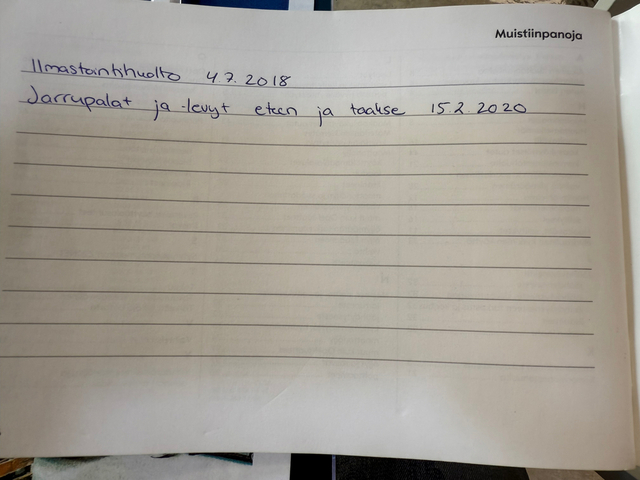 Muistiinpanoja
Ilmastointihuolto 4.7.2018
Jarrupalat ja -levyt eteen ja taakse 15.2.2020